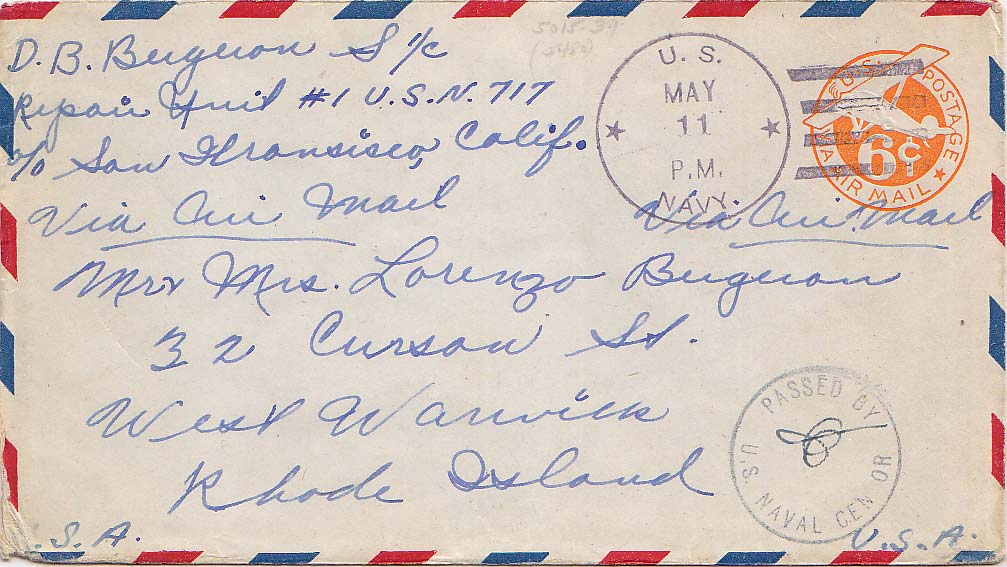 D. B. Bergeron S 1/c
Repair Unit #1 U.S.N. 717
c/o San Fransisco, Calif.
Via Air Mail
Via Air Mail
Mr & Mrs. Lorenzo Bergeron
32 Curson St.
West Warwick
Rhode Island
U.S.A.
U.S.A.
U. S.
MAY
11
P.M.
NAVY.
U.S. POSTAGE
6¢
AIR MAIL
PASSED BY
U.S. NAVAL CEN OR